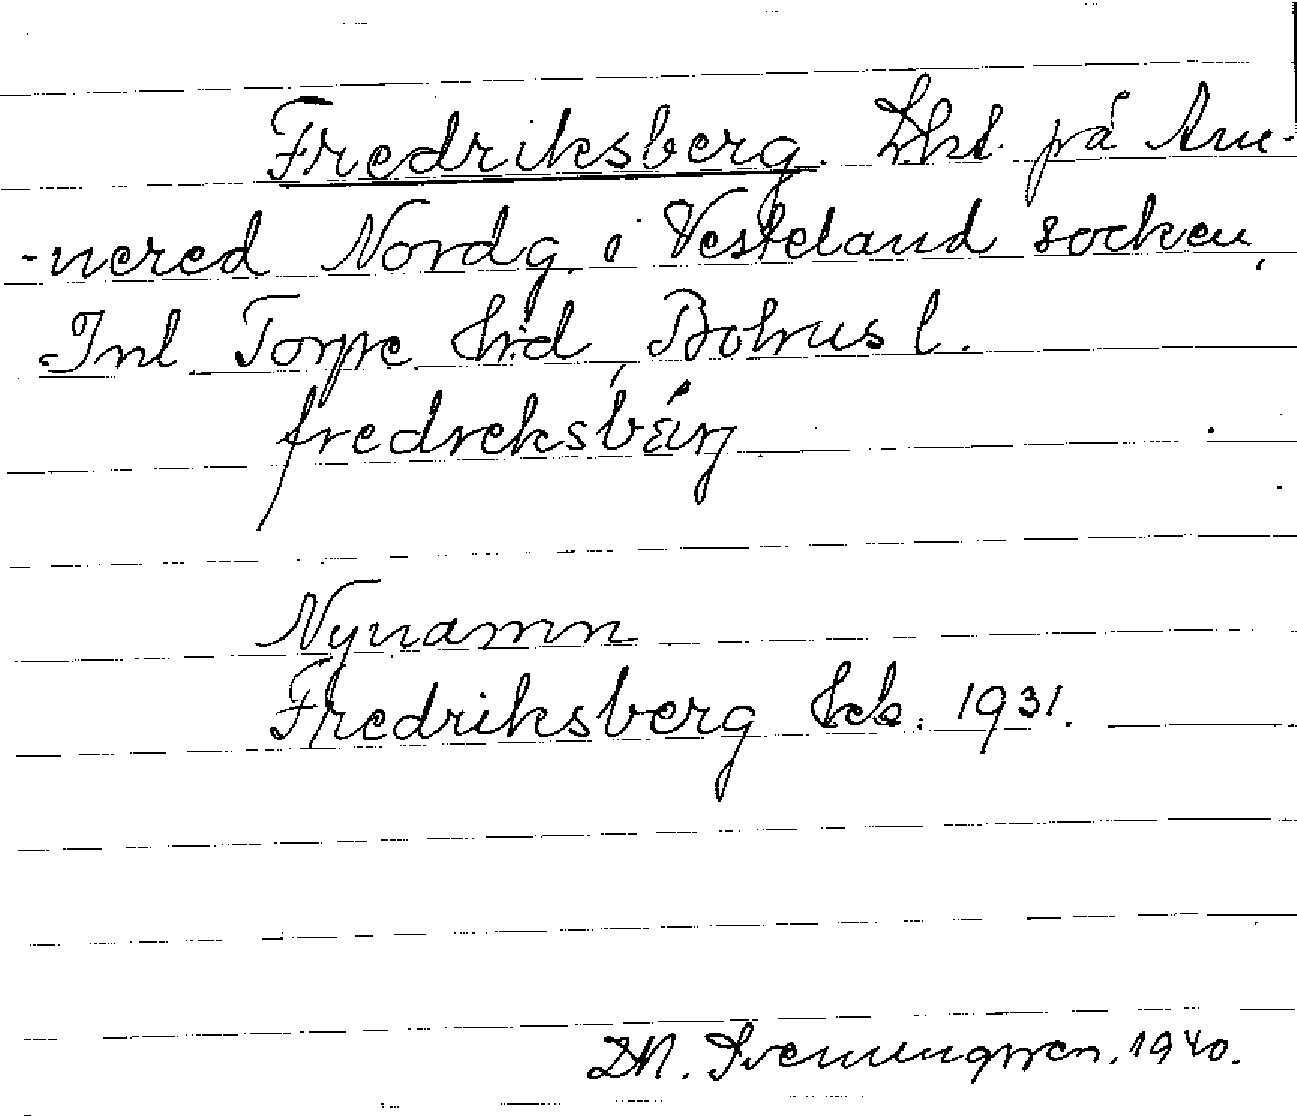 Fredriksberg. Lht. på Am-
-nered Nordg. i Vesterland socken,
Inl Torpe hrd, Bohus l.
fredreksbærj
Nynamn
Fredriksberg kck. 1931.
1940.